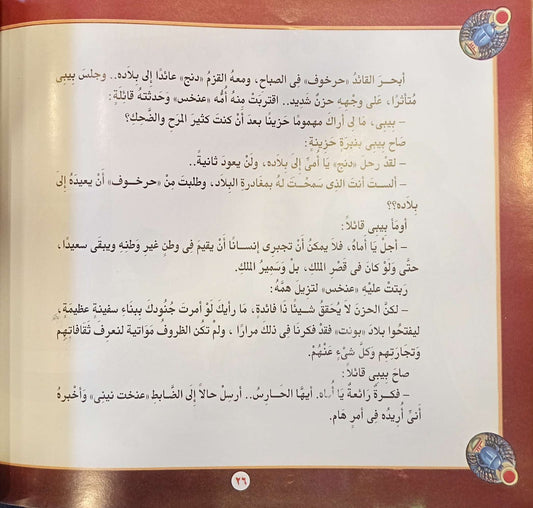 أبحـرَ القائـدُ «حرخوف» فى الصباح، ومعهُ القزمُ «دنج» عائدًا إلى بلاده.. وجلسَ بيبى
مُتأثرًا، عَلى وجْههِ حزنٌ شَديد.. اقتربَتْ مِنهُ أُمُّه «عنخس» وَحدثتهُ قائلةً:
– بيبى، مَا لِى أراكَ مهمومًا حَزينًا بعدَ أنْ كنتَ كثيرَ المرَحِ والضَّحِكِ؟
صَاح بيبى بنبرَةٍ حَزينةٍ:
– لقدْ رحلَ «دنج» يَا أمِّىَ إلى بلاَده، ولنْ يعودَ ثانيةً..
– ألستَ أنتَ الذِى سَمحْتَ لهُ بمغادرةِ البلاَدِ، وطلبتَ مِنْ «حرخـوف» أنْ يعيدَهُ إلى
بِلادَه؟؟
أومَأَ بيبى قائـلاً:
– أجلْ يَا أماهُ، فلاَ يمكنُ أنْ تجبرى إنسـانًا أنْ يقيمَ فِى وطنٍ غيرِ وَطنِهِ ويبقَى سعيدًا،
حتَّى وَلَوْ كانَ فى قصْرِ الملكِ، بلْ وَسَميرُ الملكِ.
رَبتَتْ عَليْهِ «عنخس» لتزيلَ همَّهُ:
– لكنَّ الحزنَ لاَ يُحَققُ شيئًا ذَا فائدةٍ، مَا رأيكَ لوْ أمرتَ جُنودكَ ببنَاءِ سفينةٍ عظيمَةٍ،
ليفتحُوا بلادَ «بونت» فقدْ فكرنَا فِى ذلكَ مرارًا، ولمْ تكن الظروفُ مُوَاتية لنعرفَ ثَقافاتِهم
وَتجارَتهم وَكلَّ شىْءٍ عَنْهُمْ.
صَاحَ بيبِى قائلاً:
– فكرةٌ رَائعةٌ يَا أماه. أيهَا الحَارسُ.. أرسِلْ حالاً إلى الضَّابطِ «عنخت نينى» وَأخبرهُ
أنىِّ أُريدُه فِى أمرٍ هَام.
٢٦